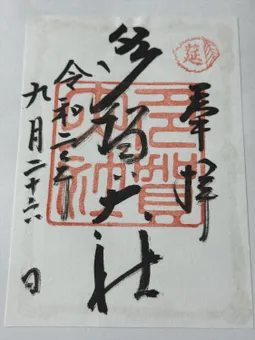 奉拝
多賀大社
多賀
大社
令和二年
九月二十六日